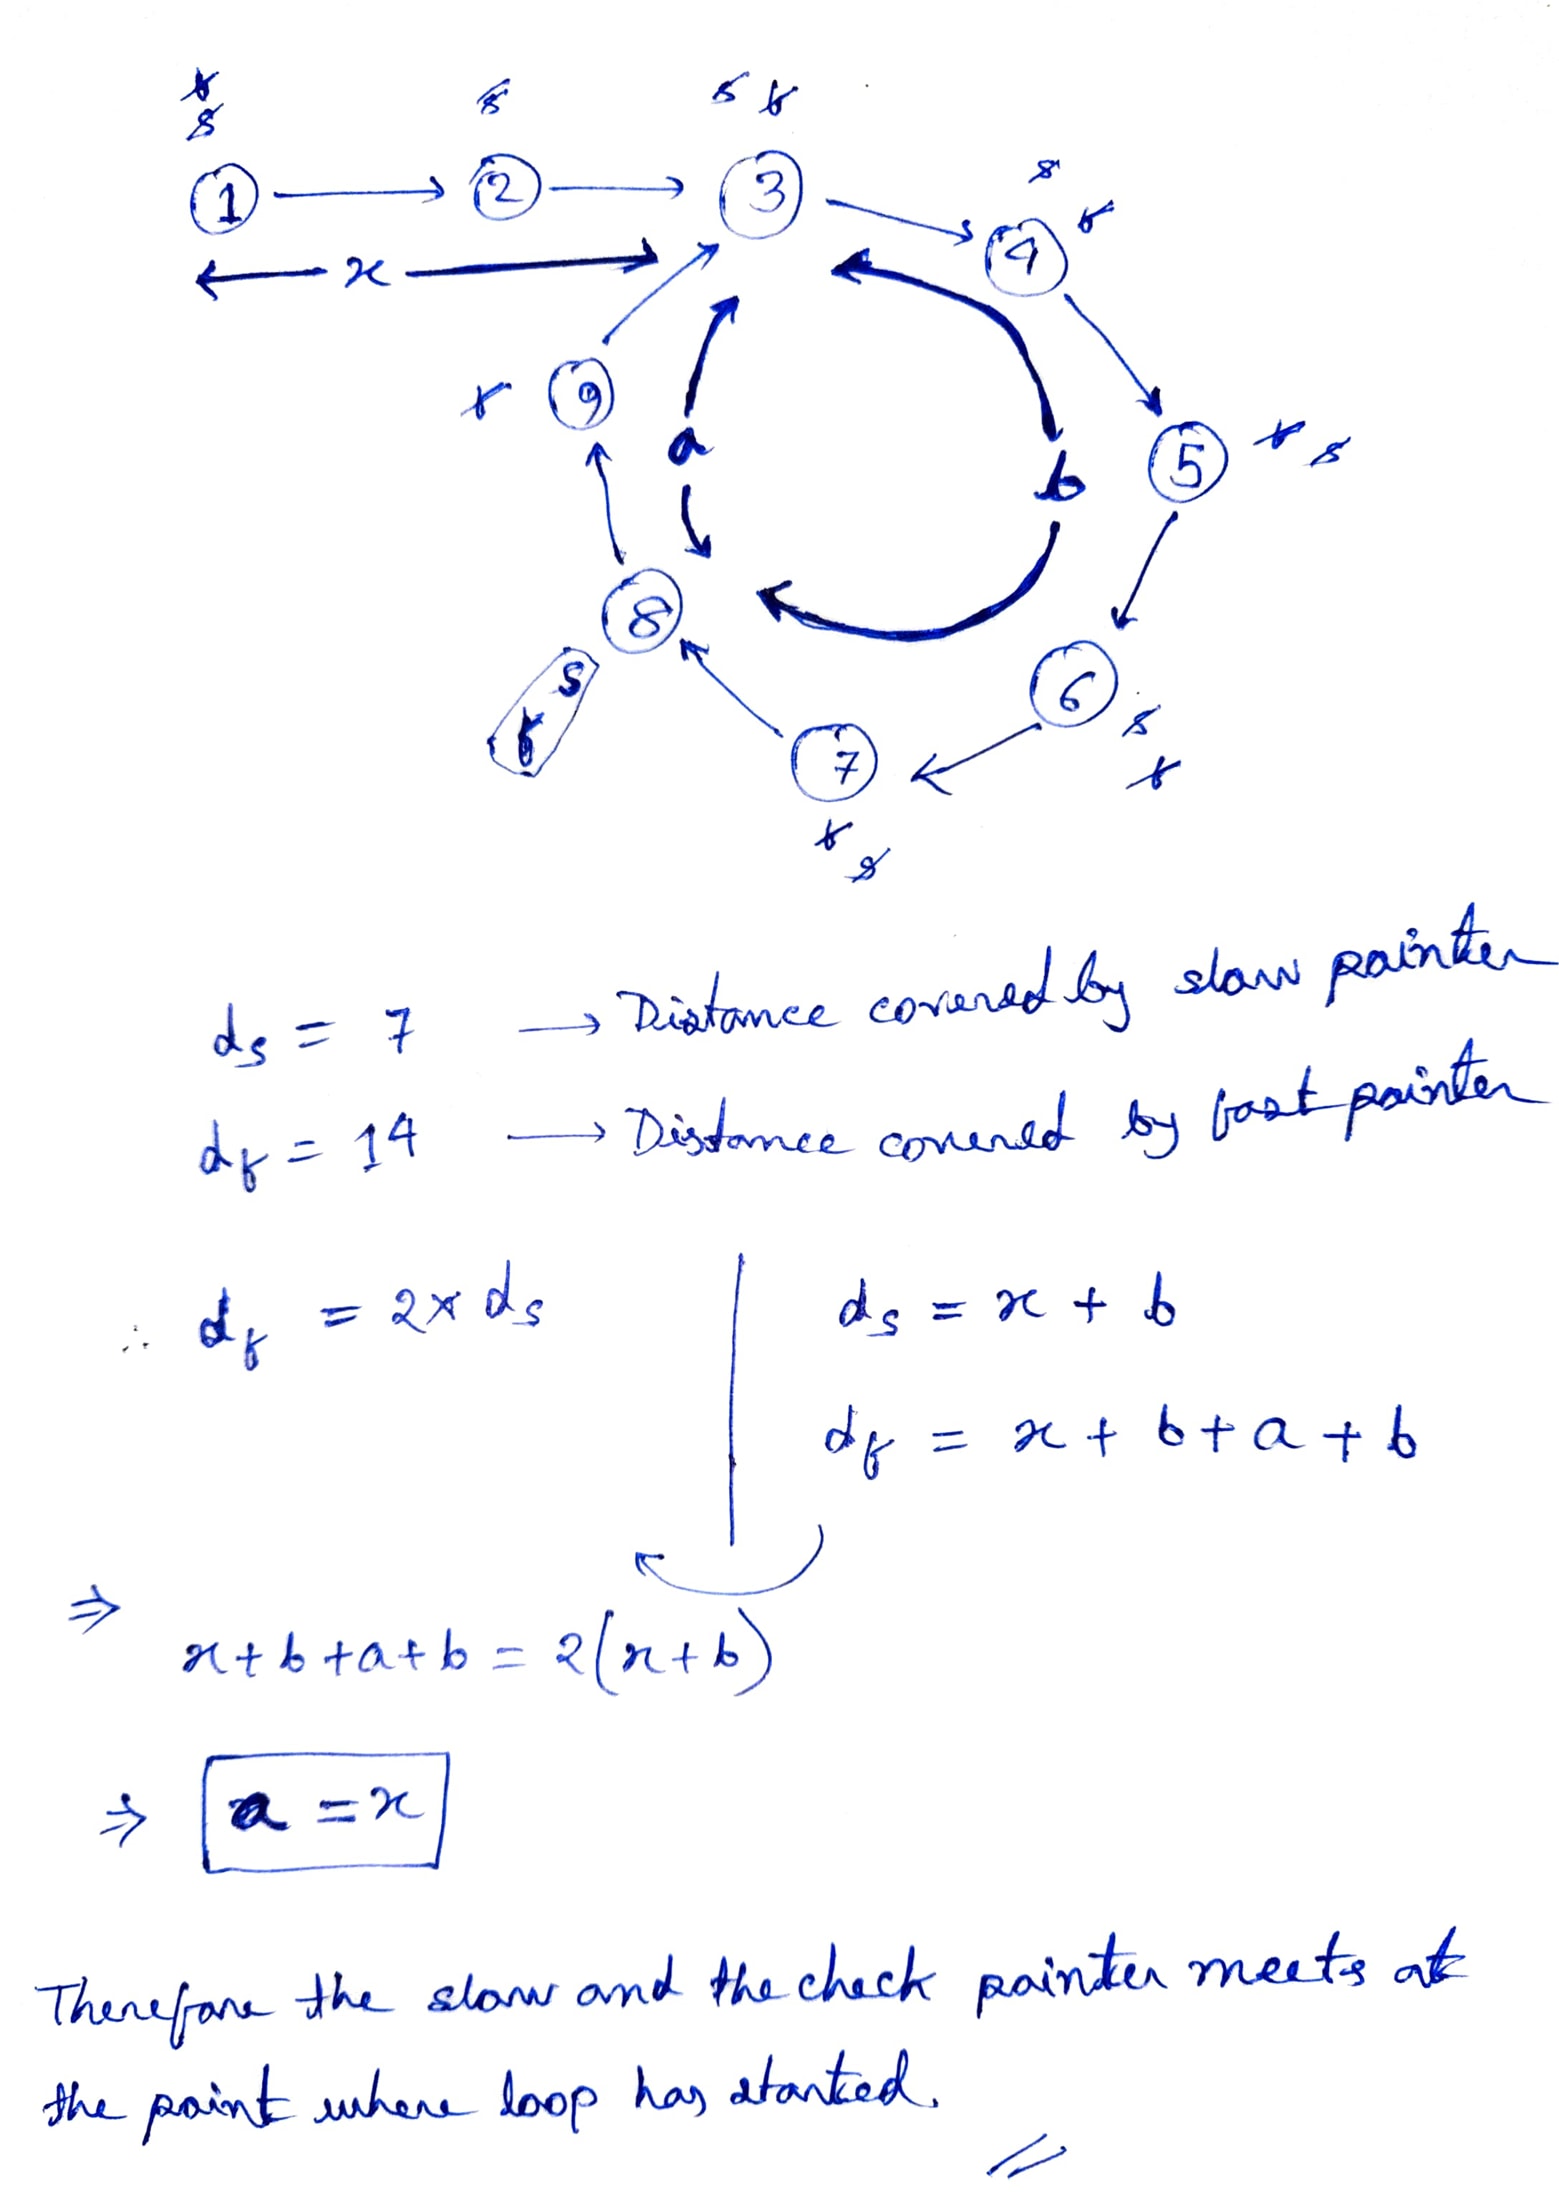 f
s
s
s f
1
2
3
s
4
f
x
f
9
a
b
5
f s
8
s
f
6
s
f
7
f
s
ds = 7 → Distance covered by slow pointer
df = 14 → Distance covered by fast pointer
∴ df = 2 × ds
ds = x + b
df = x + b + a + b
⇒
x + b + a + b = 2(x + b)
⇒ a = x
Therefore the slow and the check pointer meets at
the point where loop has started.